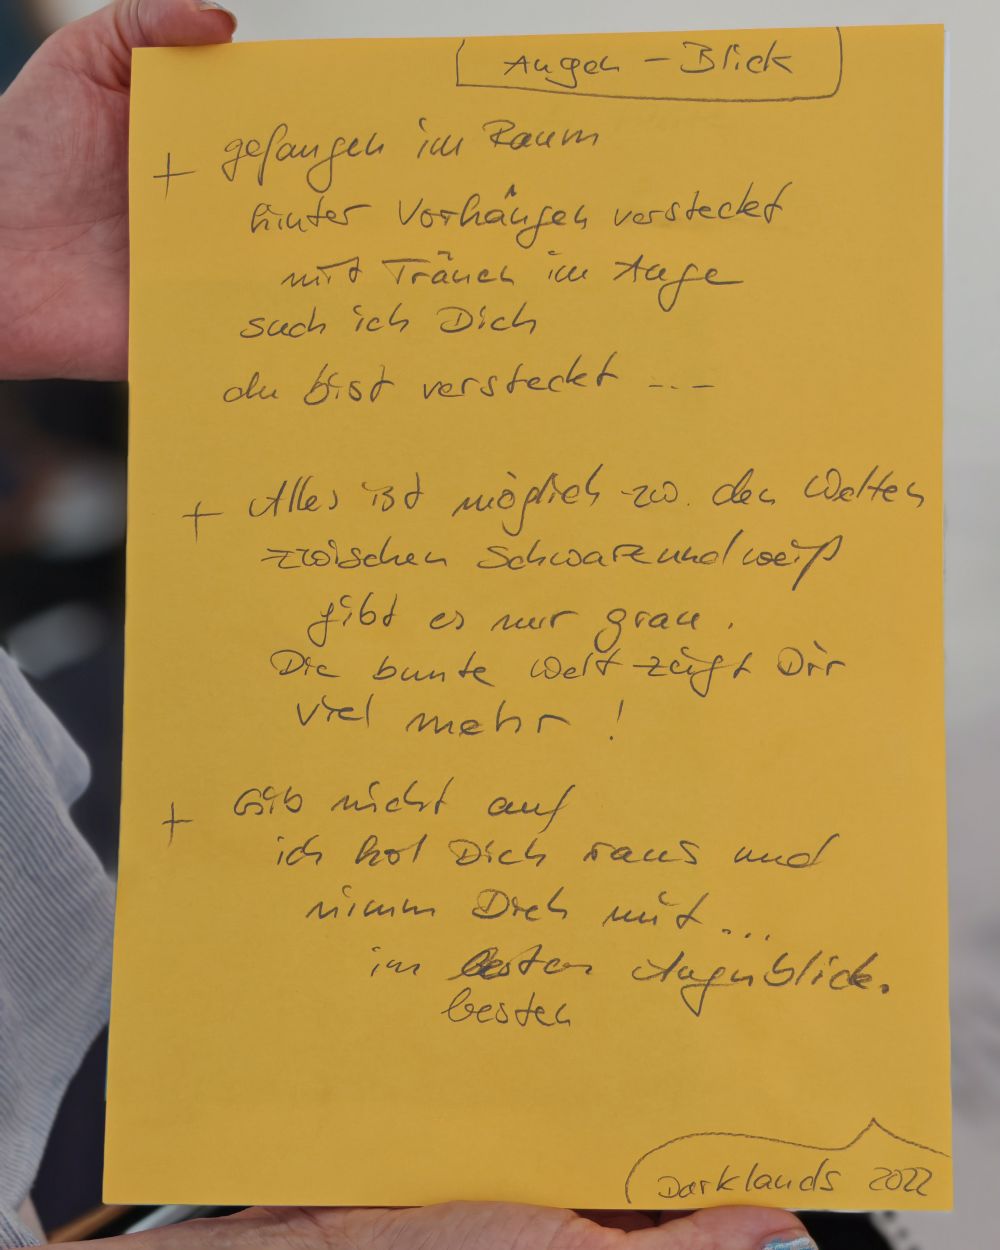 Augen - Blick
+ gefangen im Raum
hinter Vorhängen versteckt
mit Tränen im Auge
such ich Dich
du bist versteckt ...
+ Alles ist möglich zw. den Welten
zwischen Schwarz und weiß
gibt es nur grau.
Die bunte Welt zeigt Dir
viel mehr!
+ Gib nicht auf
ich hol Dich raus und
nimm Dich mit...
im Augnblick.
besten
Darklands 2022